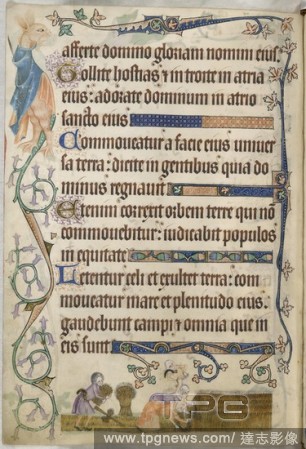 afferte domino gloriam nomini eius.
Tollite hostias ⁊ in troite in atria
eius: adorate dominum in atrio
sancto eius
Commoueatur a facie eius uniuer
sa terra: dicite in gentibus quia do
minus regnauit
Etenim correxit orbem terre qui nõ
commouebitur: iudicabit populos
in equitate
Letentur celi et exultet terra: com
moueatur mare et plenitudo eius.
gaudebunt campi ⁊ omnia que in
eis sunt
TPG
www.tpgnews.com/ 達志影像